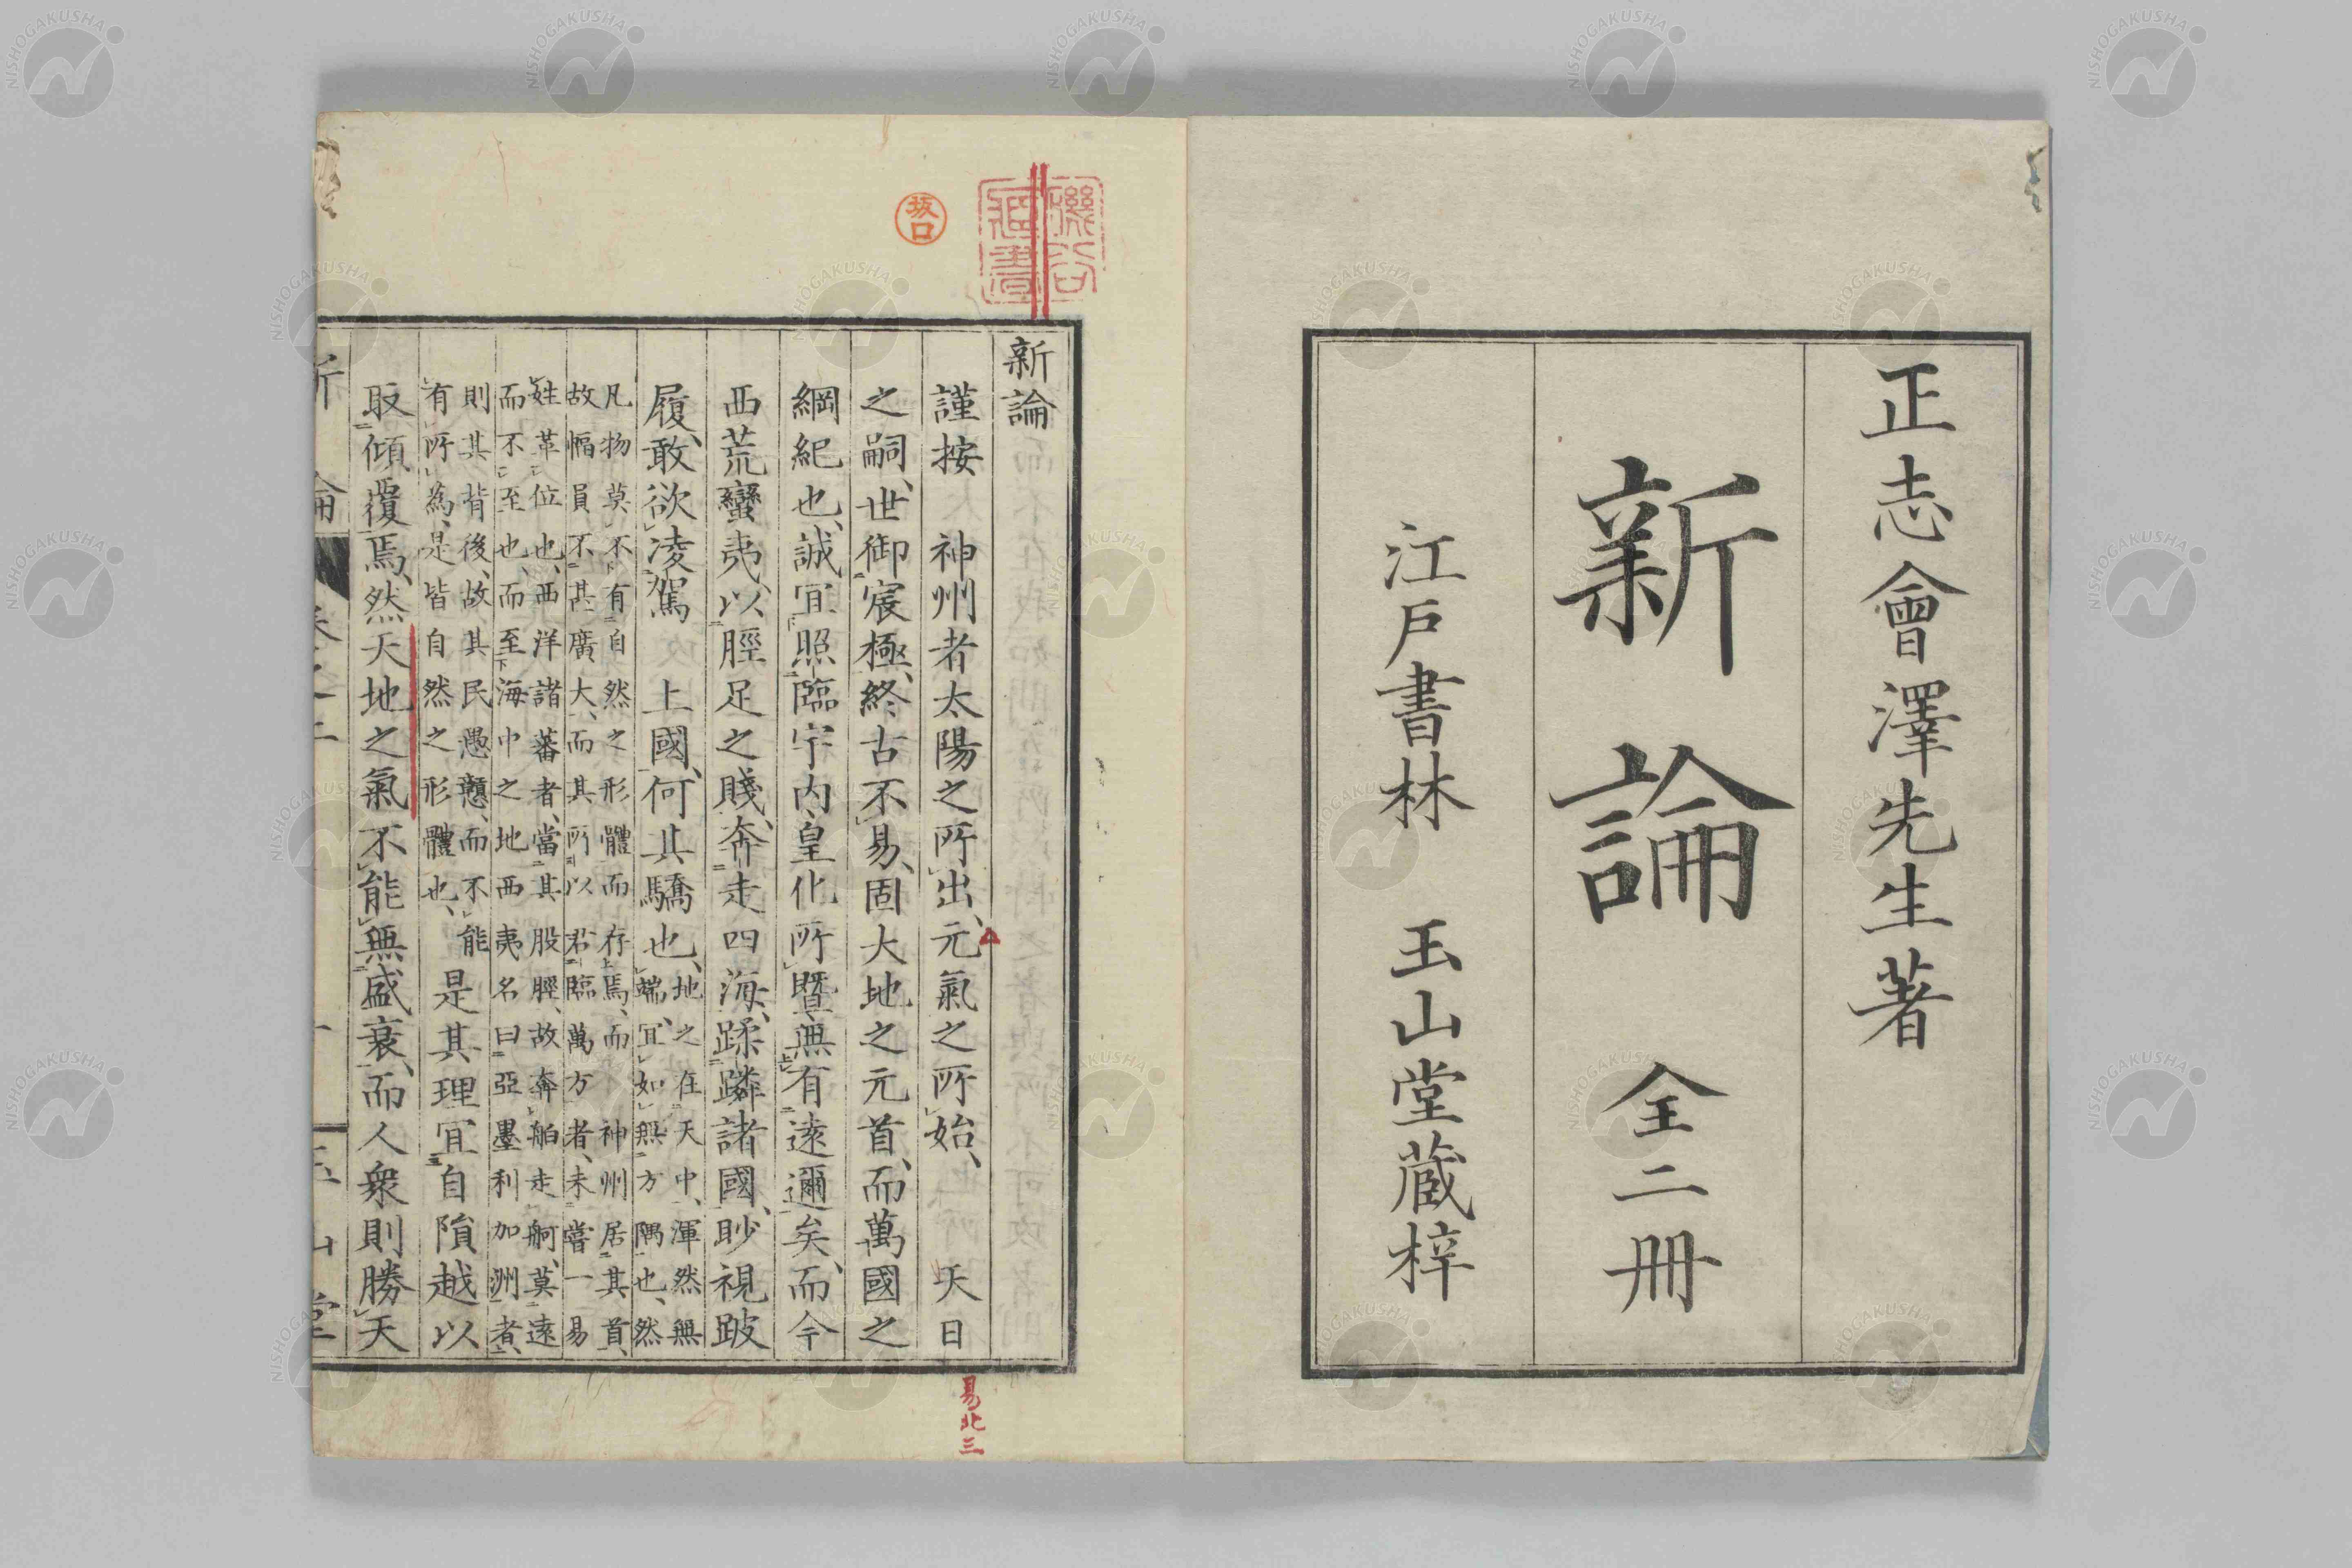 正志會澤先生著
新論 全二冊
江戸書林 玉山堂蔵梓
坂口
新論
謹按 神州者太陽之所出、元氣之所始、 天日
之嗣、世御宸極、終古不易、固大地之元首、而萬國之
綱紀也、誠宜照臨宇内、皇化所曁、無有遠邇矣、而今
西荒蠻夷、以脛足之賤、奔走四海、蹂躪諸國、眇視跛
履、敢欲凌駕 上國、何其驕也、
地之在天中、渾然無
端、宜如無方隅也、然
凡物莫不有自然之形體而存焉、而 神州居其首、
故幅員不甚廣大、而其所以君臨萬方者、未嘗一易
姓革位也、西洋諸蕃者、當其股脛、故奔舶走舸、莫遠
而不至也、而至海中之地西夷名曰亞墨利加洲者、
則其背後、故其民愚戇、而不能
有所為、是皆自然之形體也、
是其理宜自隕越以
取傾覆焉、然天地之氣不能無盛衰、而人衆則勝天
易北三
NISHOGAKUSHA